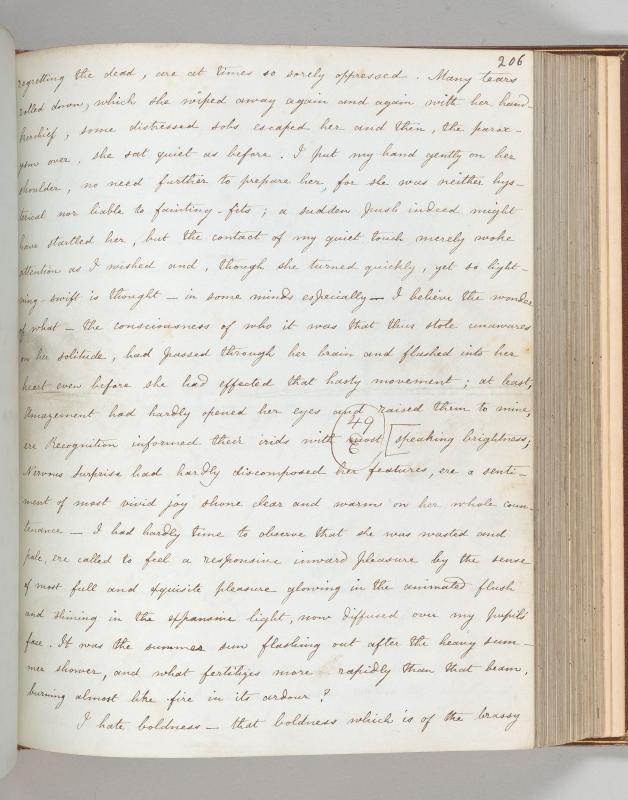 206
regretting the dead, are at times so sorely oppressed. Many tears
rolled down, which she wiped away again and again with her hand-
kerchief, some distressed sobs escaped her and then, the parox-
ysm over, she sat quiet as before. I put my hand gently on her
shoulder, no need further to prepare her, for she was neither hys-
terical nor liable to fainting-fits; a sudden push indeed might
have startled her, but the contact of my quiet touch merely woke
attention as I wished and, though she turned quickly, yet so light-
ning-swift is thought — in some minds especially — I believe the wonder
of what — the consciousness of who it was that thus stole unawares
on her solitude, had passed through her brain and flashed into her
heart even before she had effected that hasty movement; at least,
Amazement had hardly opened her eyes and raised them to mine,
49
ere Recognition informed their irids with most [speaking brightness;
Nervous surprise had hardly discomposed her features, ere a senti-
ment of most vivid joy shone clear and warm on her whole coun-
tenance — I had hardly time to observe that she was wasted and
pale, ere called to feel a responsive inward pleasure by the sense
of most full and exquisite pleasure glowing in the animated flush
and shining in the expansive light, now diffused over my pupil's
face. It was the summer sun flashing out after the heavy sum-
mer shower, and what fertilizes more rapidly than that beam,
burning almost like fire in its ardour?
I hate boldness — that boldness which is of the brassy